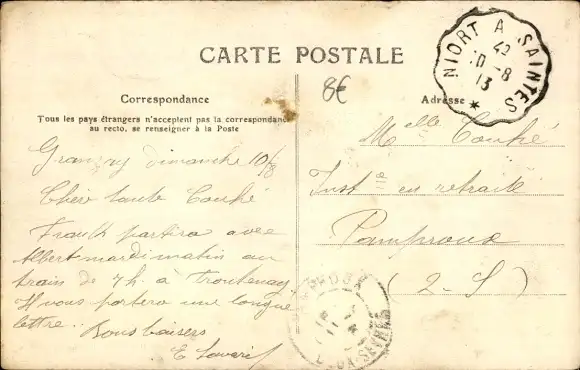 CARTE POSTALE
NIORT A SAINTES
42
10-8
13
8€
Correspondance
Tous les pays étrangers n'acceptent pas la correspondance
au recto, se renseigner à la Poste
Adresse
Granzay dimanche 10/8
Cher tante Couhé
Frault partira avec
Albert mardi matin au
train de 7h. à Frontenay.
Il vous portera une longue
lettre..
Bons baisers
E
Melle Couhé
Inste en retraite
Pamproux
(2-S)
DEUX-SEVRES